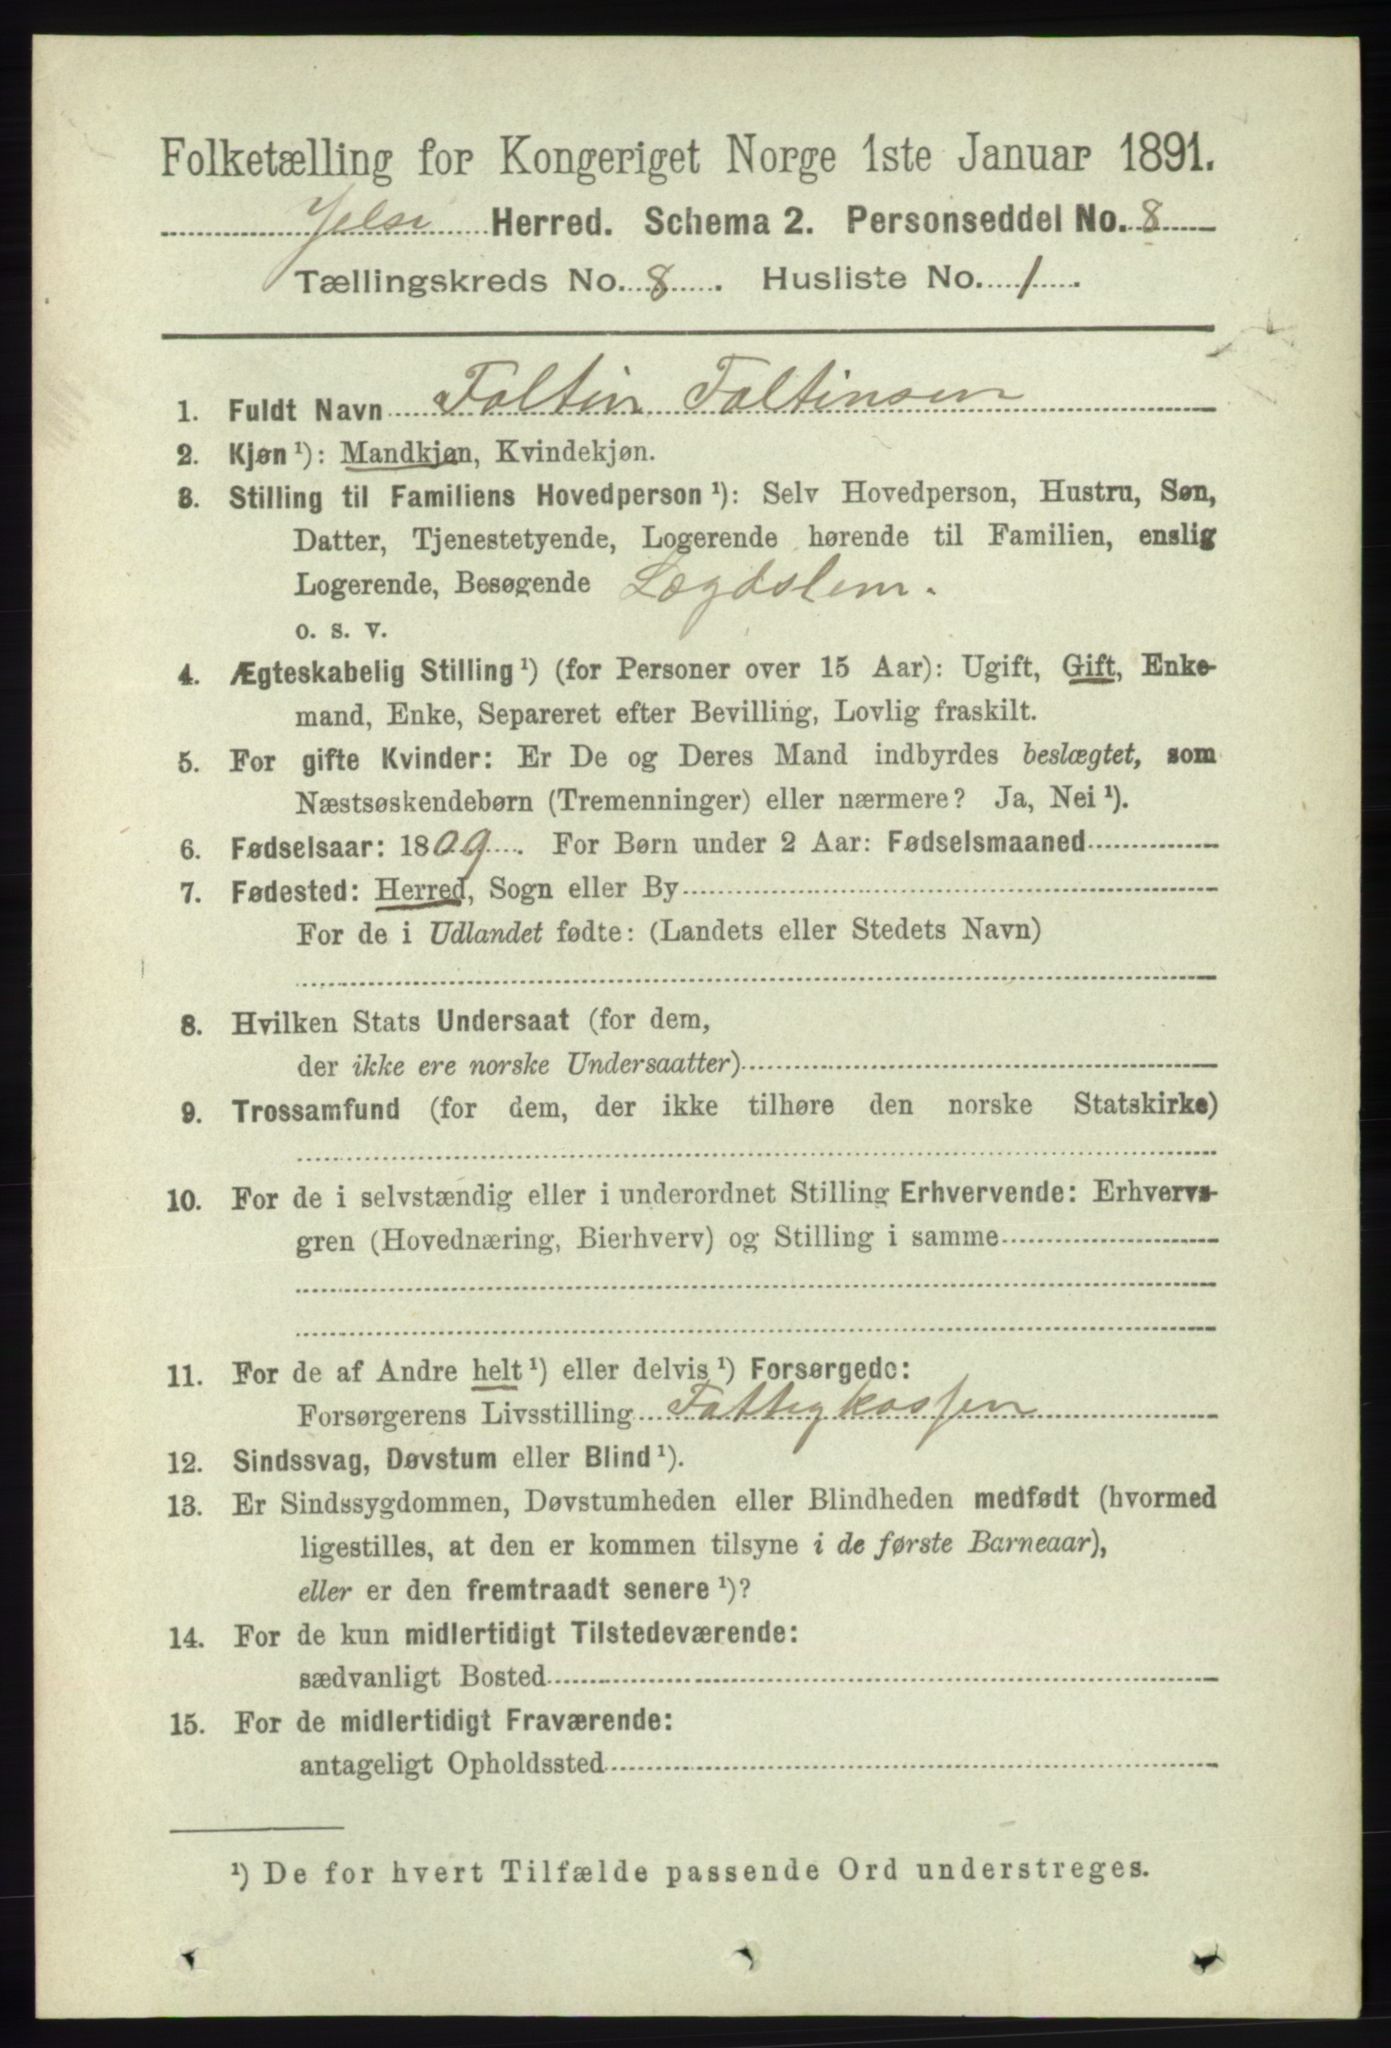 Folketælling for Kongeriget Norge 1ste Januar 1891.
Jelse Herred. Schema 2. Personseddel No. 8
Tællingskreds No. 8. Husliste No. 1.
1. Fuldt Navn Faltin Faltinsen
2. Kjøn ¹): Mandkjøn, Kvindekjøn.
3. Stilling til Familiens Hovedperson ¹): Selv Hovedperson, Hustru, Søn,
Datter, Tjenestetyende, Logerende hørende til Familien, enslig
Logerende, Besøgende Lægdslem.
o. s. v.
4. Ægteskabelig Stilling ¹) (for Personer over 15 Aar): Ugift, Gift, Enke-
mand, Enke, Separeret efter Bevilling, Lovlig fraskilt.
5. For gifte Kvinder: Er De og Deres Mand indbyrdes beslægtet, som
Næstsøskendebørn (Tremenninger) eller nærmere? Ja, Nei ¹).
6. Fødselsaar: 1809. For Børn under 2 Aar: Fødselsmaaned
7. Fødested: Herred, Sogn eller By
For de i Udlandet fødte: (Landets eller Stedets Navn)
8. Hvilken Stats Undersaat (for dem,
der ikke ere norske Undersaatter)
9. Trossamfund (for dem, der ikke tilhøre den norske Statskirke)
10. For de i selvstændig eller i underordnet Stilling Erhvervende: Erhvervs-
gren (Hovednæring, Bierhverv) og Stilling i samme
11. For de af Andre helt ¹) eller delvis ¹) Forsørgede:
Forsørgerens Livsstilling Fattigkassen
12. Sindssvag, Døvstum eller Blind ¹).
13. Er Sindssygdommen, Døvstumheden eller Blindheden medfødt (hvormed
ligestilles, at den er kommen tilsyne i de første Barneaar),
eller er den fremtraadt senere ¹)?
14. For de kun midlertidigt Tilstedeværende:
sædvanligt Bosted
15. For de midlertidigt Fraværende:
antageligt Opholdssted
¹) De for hvert Tilfælde passende Ord understreges.